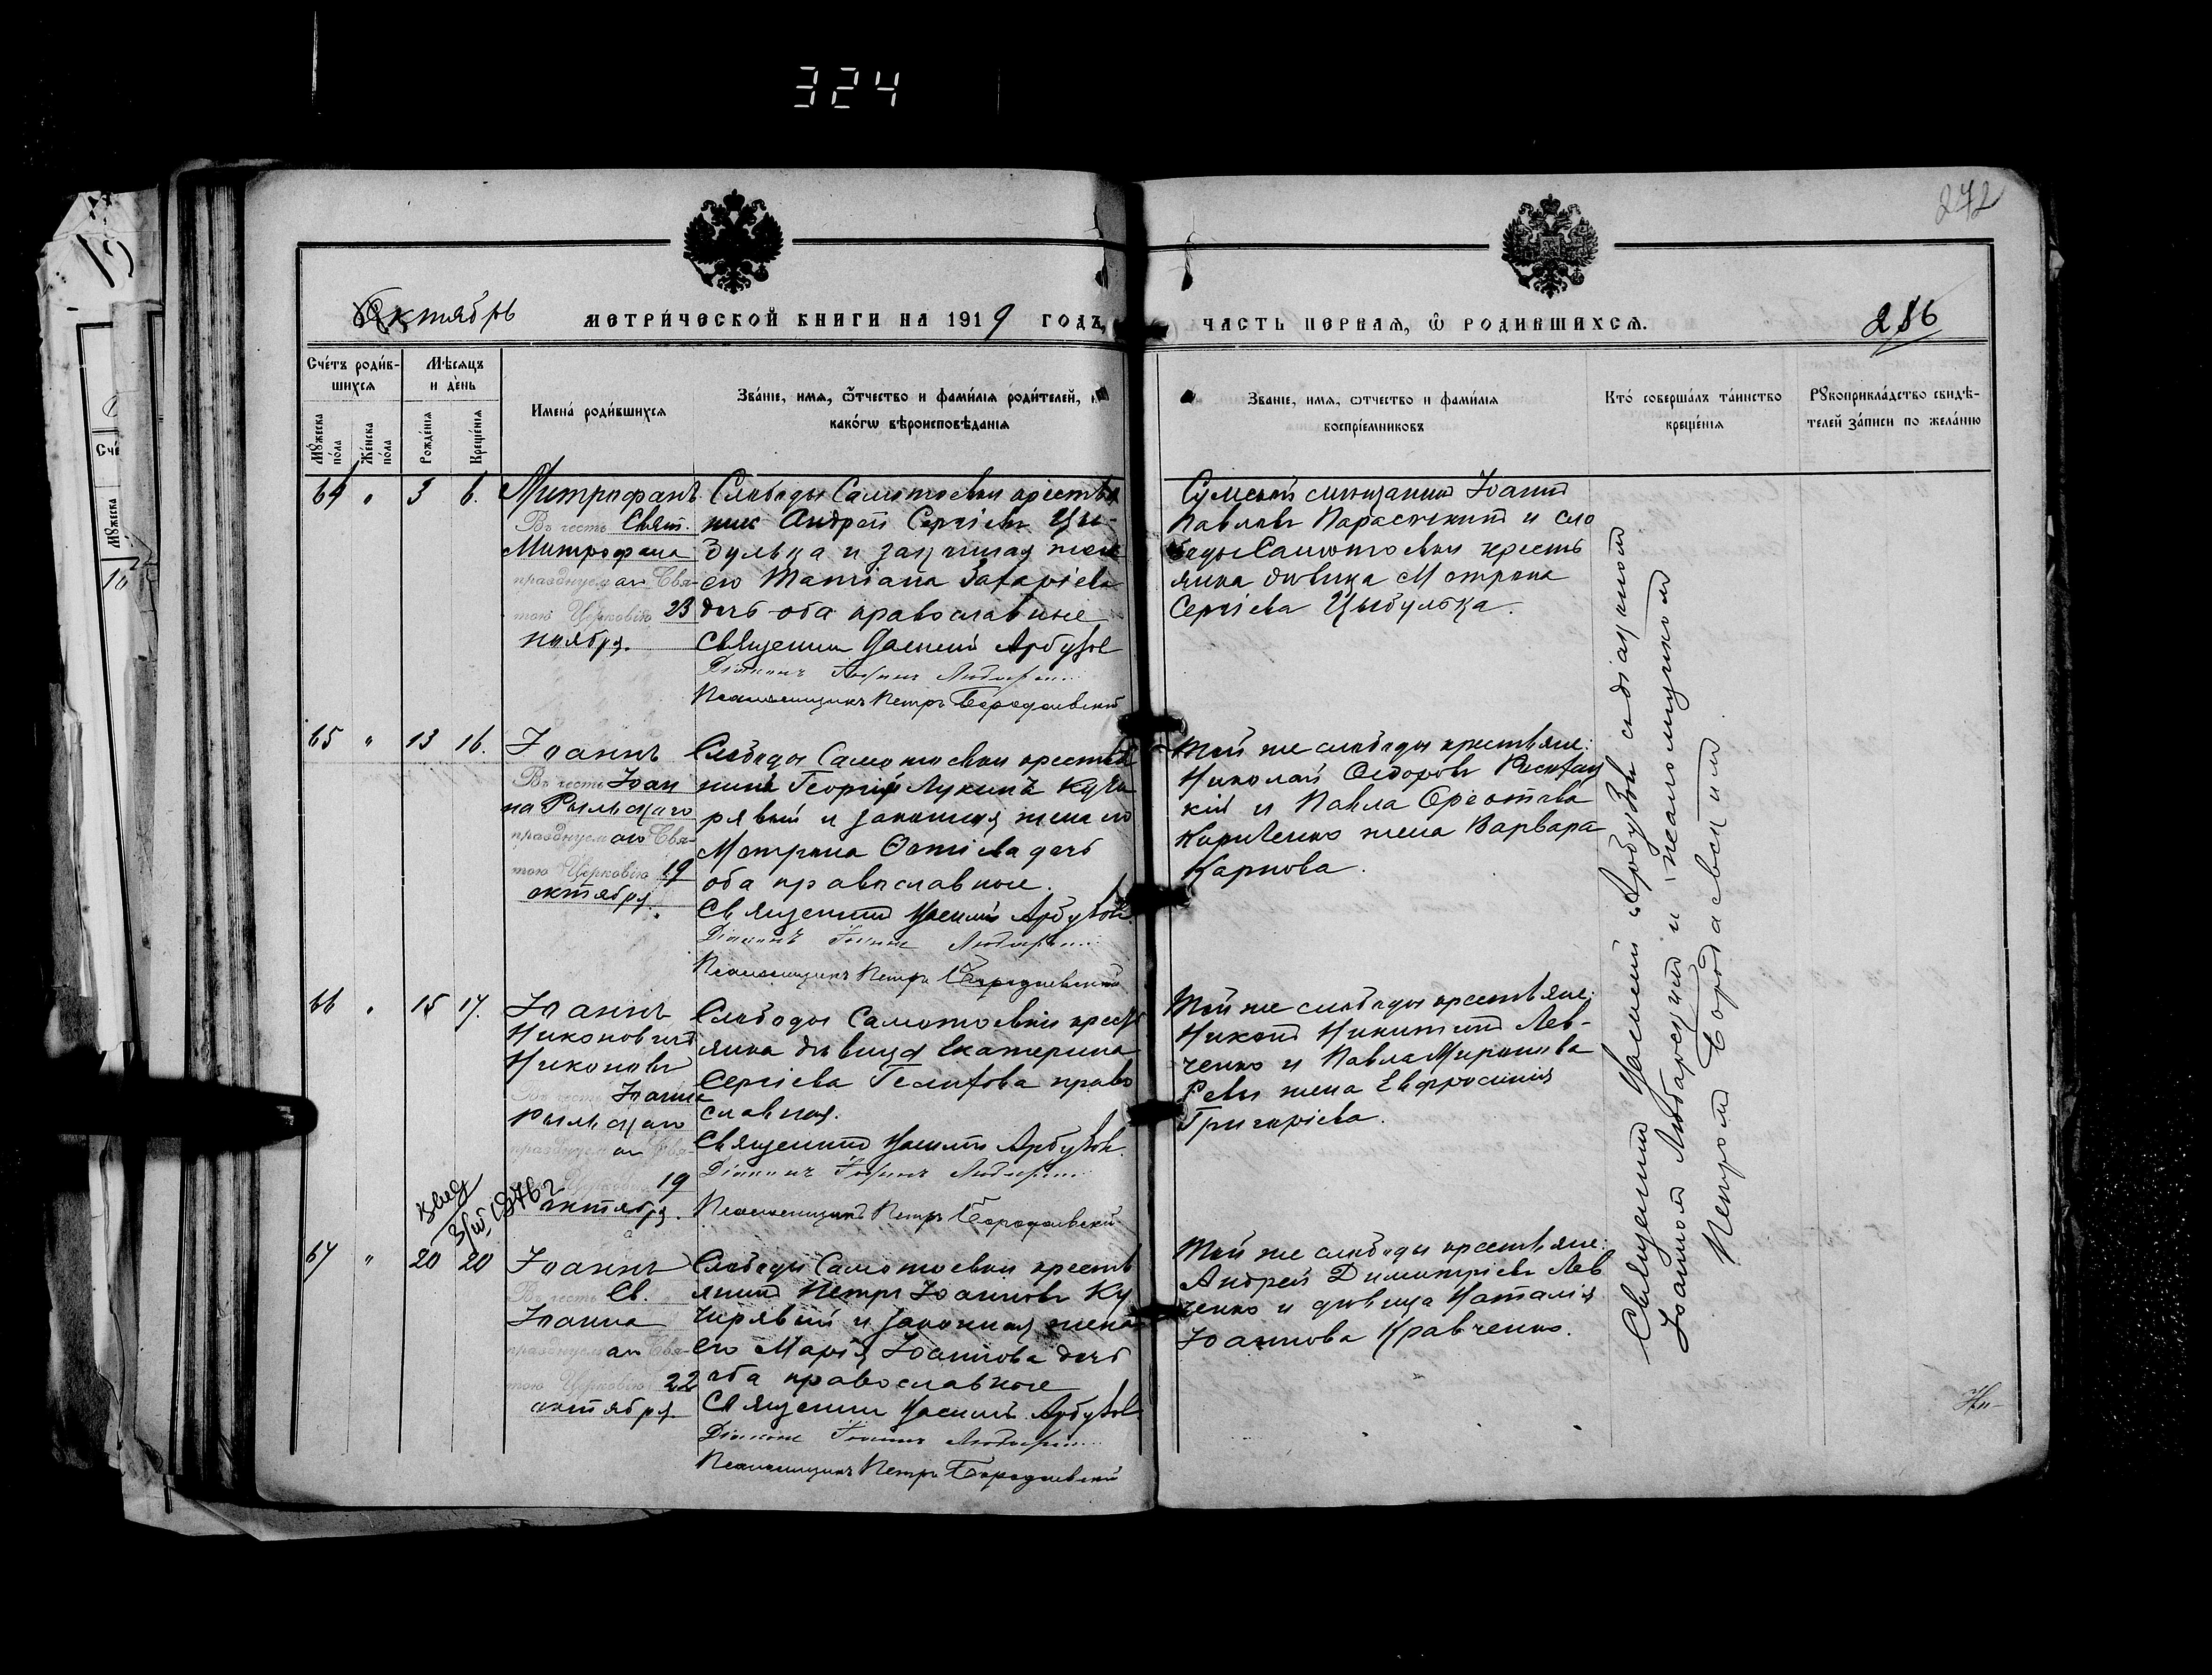 324
272
Октябрь
МЕТРИ́ЧЕСКОЙ КНИГИ НА 1919 ГОДЪ,
ЧАСТЬ ПЕРВАЯ, Ѡ РОДИВШИХСЯ.
286
Сче́тъ роди́в-
шихся
Мѣсяцъ
и де́нь
Мꙋ́жеска
по́ла
Же́нска
по́ла
Рожде́нія
Креще́нія
Имена́ роди́вшихся
Зва́ніе, имя, ѻ҆́тчество и фами́лія роди́телей, и
како́гѡ вѣроисповѣ́данія
Зва́ніе, имя, ѻтчество и фами́лія
воспріе́мниковъ
Кто́ соверша́лъ та́инство
креще́нія
Рꙋкоприкла́дство свидѣ́-
телей за́писи по жела́нію
64 " 3 6.
Митрофанъ
Въ честь Свят.
Митрофана
празднуемаго Свя-
тою Церковію 23
ноября.
Слободы Самотоевки крестья
нин Андрей Сергіевъ Цы-
булька и законная жена
его Татіана Захаріева
дочь оба православные
Священник Василій Арбузов
Псаломщикъ Петръ Бородаевскій
Сумской мещанинъ Іоаннъ
Павловъ и сло
боды Самотоевки кресть
янка девица Мотрона
Сергіева Цыбулька.
65 " 13 16.
Іоаннъ
Въ честь Іоан
на Рыльскаго
празднуемаго Свя-
тою Церковію 19
октября.
Слободы Самотоевки крестья
нинъ Георгій Лукинъ Куче
рявый и законная жена его
Мотрона дочь
оба православные.
Священник Василій Арбузов.
Псаломщикъ Петръ Бородаевскій
Той же слободы крестьяне:
Николай Ѳедоровъ
кій и Павла
жена Варвара
Карпова.
66 " 15 17.
Іоаннъ
Никонович
Никоновъ
Въ честь Іоанна
Рыльскаго
празднуемаго Свя-
тою Церковію 19
октября.
Слободы Самотоевки кресть
янка девица Екатерина
Сергіева право
славная.
Священник Василій Арбузов.
Псаломщикъ Петръ Бородаевскій
Той же слободы крестьяне:
Никон Никитинъ Лев-
ченко и Павла Миронова
жена Евфросинія
Григоріева.
1976 г
67 " 20 20
Іоаннъ
Въ честь Св.
Іоанна
празднуемаго Свя-
тою Церковію 22
октября
Слободы Самотоевки кресть
янинъ Петръ Іоанновъ Ку
черявый и законная жена
его Марія Іоаннова дочь
оба православные
Священник Василій Арбузов
Псаломщикъ Петръ Бородаевскій
Той же слободы крестьяне:
Андрей Димитріевъ Лев
ченко и девица Наталія
Іоаннова Кравченко.
Священник Василій Арбузовъ съ діакономъ
Іоанномъ и псаломщикомъ
Петромъ Бородаевскимъ